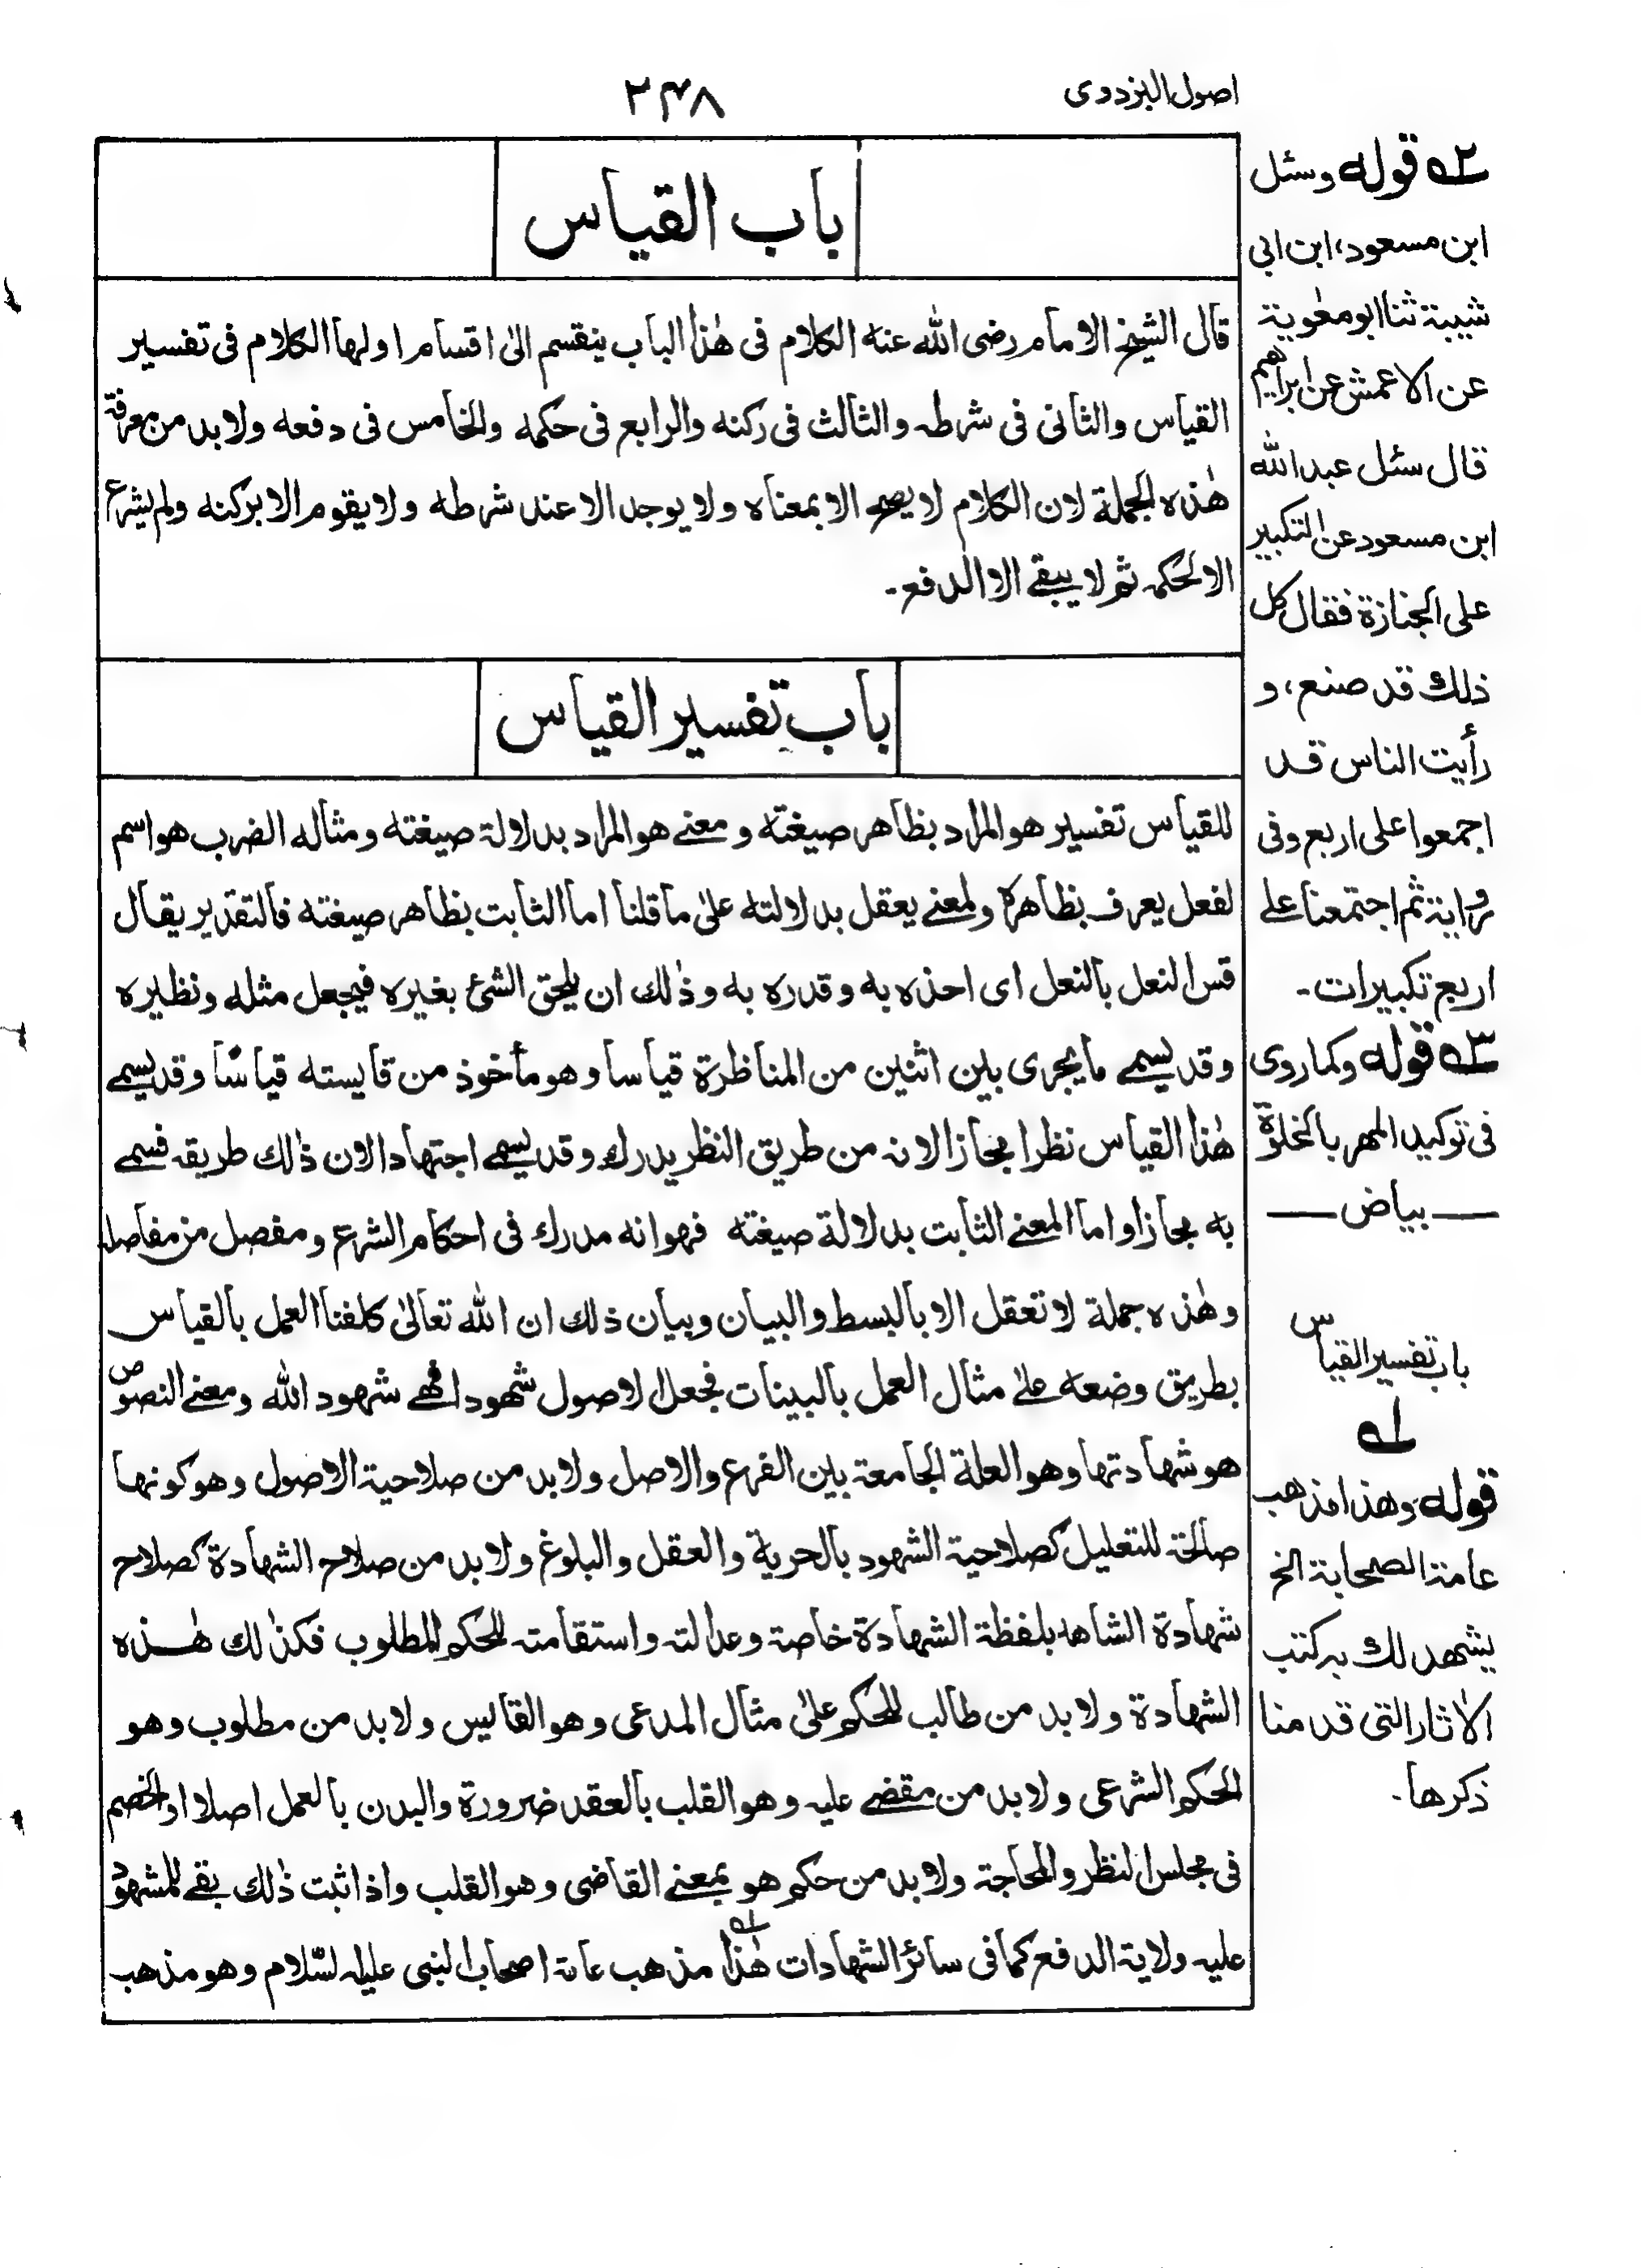 اصول البزدوى
٢٤٨
باب القياس
قال الشيخ الامام رضى الله عنه الكلام فى هٰذا الباب ينقسم الىٰ اقسام اولها الكلام فى تفسير
القياس والثانى فى شرطه والثالث فى ركنه والرابع فى حكمه والخامس فى دفعه ولابد من معرفة
هٰذه الجملة لان الكلام لا يصح الا بمعناه ولا يوجد الا عند شرطه ولا يقوم الا بركنه ولم يشرع
الا لحكمه ثم لا يبقے الا الدفع۔
باب تفسير القياس
للقياس تفسير هو المراد بظاهر صيغته و معنے هو المراد بدلالة صيغته ومثاله الضرب هو اسم
لفعل يعرف بظاهره ولمعنے يعقل بدلالته علىٰ ما قلنا اما الثابت بظاهر صيغته فالتقدير يقال
قس النعل بالنعل اى احذه به وقدره به وذٰلك ان يلحق الشئ بغيره فيجعل مثله ونظيره
وقد يسمے ما يجرى بين اثنين من المناظرة قياسا وهو مأخوذ من قايسته قياسًا وقد يسمے
هٰذا القياس نظرا مجازا لانه من طريق النظر يدرك وقد يسمے اجتهادا لان ذٰلك طريقه فسمے
به مجازا واما المعنے الثابت بدلالة صيغته فهو انه مدرك فى احكام الشرع ومفصل من مفاصله
وهٰذه جملة لا تعقل الا بالبسط والبيان وبيان ذلك ان الله تعالىٰ كلفنا العمل بالقياس
بطريق وضعه علىٰ مثال العمل بالبينات فجعل الاصول شهودا فهے شهود الله ومعنے النصوص
هو شهادتها وهو العلة الجامعة بين الفرع والاصل ولابد من صلاحية الاصول وهو كونها
صالحة للتعليل كصلاحية الشهود بالحرية والعقل والبلوغ ولابد من صلاح الشهادة كصلاح
شهادة الشاهد بلفظة الشهادة خاصة وعدالته واستقامته للحكم المطلوب فكذٰلك هٰذه
الشهادة ولابد من طالب للحكم علىٰ مثال المدعى وهو القايس ولابد من مطلوب وهو
الحكم الشرعى ولابد من مقضے عليه وهو القلب بالعقد ضرورة والبدن بالعمل اصلا او الخصم
فى مجلس النظر والمحاجة ولابد من حكم هو بمعنے القاضى وهو القلب واذا ثبت ذٰلك بقے للمشهود
عليه ولاية الدفع كما فى سائر الشهادات هٰذا ١ه مذهب عامة اصحاب النبى عليه السّلام وهو مذهب
٢ه قوله وسئل
ابن مسعود، ابن ابى
شيبة ثنا ابو معٰوية
عن الاعمش عن ابراهيم
قال سئل عبد الله
ابن مسعود عن التكبير
على الجنازة فقال كل
ذلك قد صنع، و
رأيت الناس قد
اجمعوا على اربع وفى
رواية ثم اجتمعنا علے
اربع تكبيرات۔
٣ه قوله وكما روى
فى توكيد المهر بالخلوة
— بياض —
باب تفسير القياس
١ه
قوله وهذا مذهب
عامة الصحابة الخ
يشهد لك به كتب
الاٰثار التى قدمنا
ذكرها۔